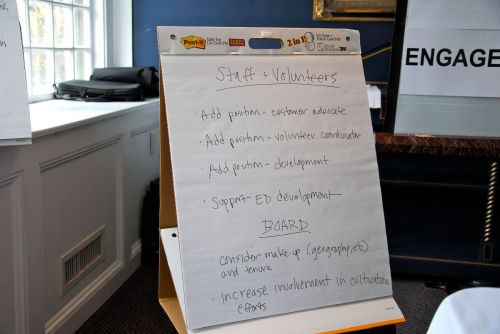 Post-it
2 in 1!
3M
ENGAGE
Staff + Volunteers
· Add position - customer advocate
· Add position - volunteer coordinator
· Add position - development
· Support ED development
BOARD
· consider make-up (geography, etc)
and tenure
· Increase involvement in cultivation
efforts